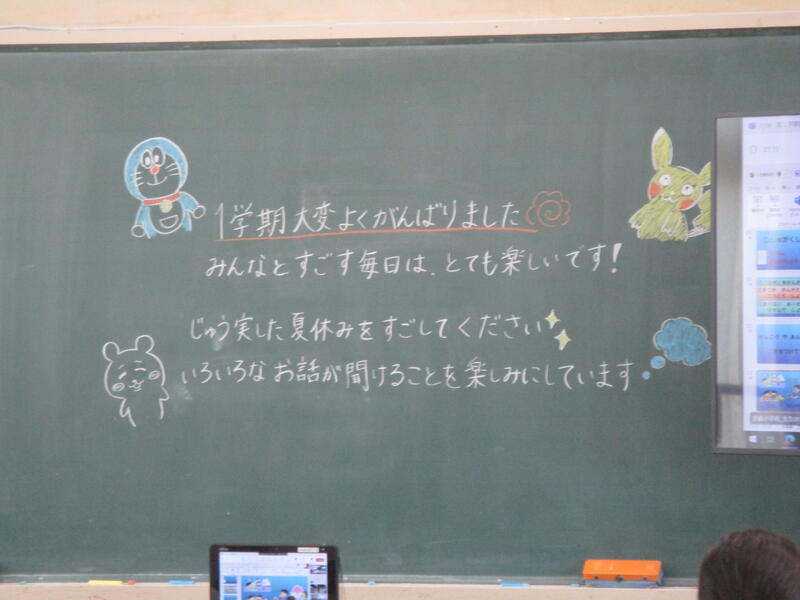 1学期大変よくがんばりました
みんなとすごす毎日は、とても楽しいです!
じゅう実した夏休みをすごしてください
いろいろなお話が聞けることを楽しみにしています